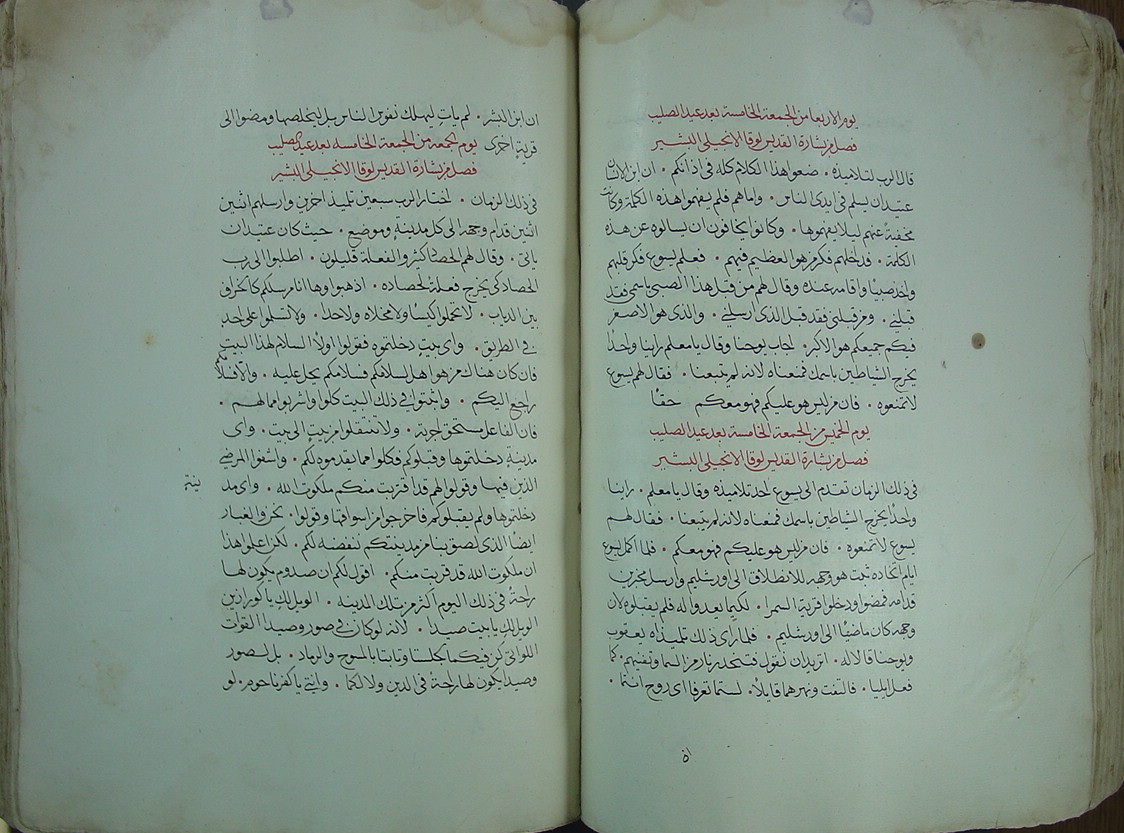 يوم الاربعا من الجمعة الخامسة بعد عيد الصليب
فصل من بشارة القديس لوقا الانجيلي البشير
قال الرب لتلاميذه . ضعوا هذا الكلام كله في اذانكم . ان ابن الانسان
عتيد ان يسلم في ايدي الناس . واما هم فلم يفهموا هذه الكلمة وكانت
مخفية عنهم ليلا يفهموها . وكانوا يخافون ان يسالوه عن هذه
الكلمة . فداخلهم فكر من هو العظيم فيهم . فعلم يسوع فكر قلبهم
واخذ صبيا واقامه عنده وقال لهم من قبل هذا الصبي باسمي فقد
قبلني . ومن قبلني فقد قبل الذي ارسلني . والذي هو الاصغر
فيكم جميعكم هو الاكبر . اجاب يوحنا وقال يا معلم راينا واحدا
يخرج الشياطين باسمك فمنعناه لانه لم يتبعنا . فقال لهم يسوع
لا تمنعوه . فان من ليس هو عليكم فهو معكم حقا
يوم الخميس من الجمعة الخامسة بعد عيد الصليب
فصل من بشارة القديس لوقا الانجيلي البشير
في ذلك الزمان تقدم الى يسوع احد تلاميذه وقال يا معلم . راينا
واحدا يخرج الشياطين باسمك فمنعناه لانه لم يتبعنا . فقال لهم
يسوع لا تمنعوه . فان من ليس هو عليكم فهو معكم . فلما اكمل يسوع
ايام اتخاده ثبت هو وجهه للانطلاق الى اورشليم وارسل مخبرين
قدامه فمضوا ودخلوا قرية السمرا . لكيما يعدوا له فلم يقبلوه لان
وجهه كان ماضيا الى اورشليم . فلما راى ذلك تلميذاه يعقوب
ويوحنا قالا له . اتريد ان نقول فتنحدر نار من السما وتفنيهم . كما
فعل ايليا . فالتفت ونهرهما قايلا . لستما تعرفا اي روح انتما .
ان ابن البشر . لم يات ليهلك نفوس الناس بل ليخلصها ومضوا الى
قرية اخرى يوم الجمعه من الجمعة الخامسه بعد عيد الصليب
فصل من بشارة القديس لوقا الانجيلي البشير
في ذلك الزمان . اختار الرب سبعين تلميذ اخرين وارسلهم اثنين
اثنين قدام وجهه الى كل مدينة وموضع . حيث كان عتيد ان
ياتي . وقال لهم الحصاد كثير والفعلة قليلون . اطلبوا الى رب
الحصاد كي يخرج فعلة لحصاده . اذهبوا وها انا مرسلكم كالخراف
بين الدياب . لا تحملوا كيسا ولا مخلاه ولا حدا . ولا تسلموا على احد
في الطريق . واي بيت دخلتموه فقولوا اولا السلام لهذا البيت
فان كان هناك من هو اهل لسلامكم فسلامكم يحل عليه . والا فسلامكم
راجع اليكم . واثبتوا في ذلك البيت كلوا واشربوا مما لهم .
فان الفاعل مستحق اجرته . ولا تنتقلوا من بيت الى بيت . واي
مدينة دخلتموها وقبلوكم فكلوا مما يقدموه لكم . واشفوا المرضى
الذين فيها وقولوا لهم قد اقتربت منكم ملكوت الله . واي مد
ينة
دخلتموها ولم يقبلوكم فاخرجوا من اسواقها وقولوا . نحن والغبار
ايضا الذي لصق بنا من مدينتكم ننفضه لكم . لكن اعلموا هذا
ان ملكوت الله قد قربت منكم . اقول لكم ان صدوم يكون لها
راحة في ذلك اليوم اكثر من تلك المدينه . الويل لك يا كورازين
الويل لك يا بيت صيدا . لانه لو كان في صور وصيدا القوات
اللواتي كن فيكما لجلستا وتابتا بالمسوح والرماد . بل لصور
وصيدا يكون لها راحة في الدين ولا لكما . وانتي يا كفرناحوم . لو